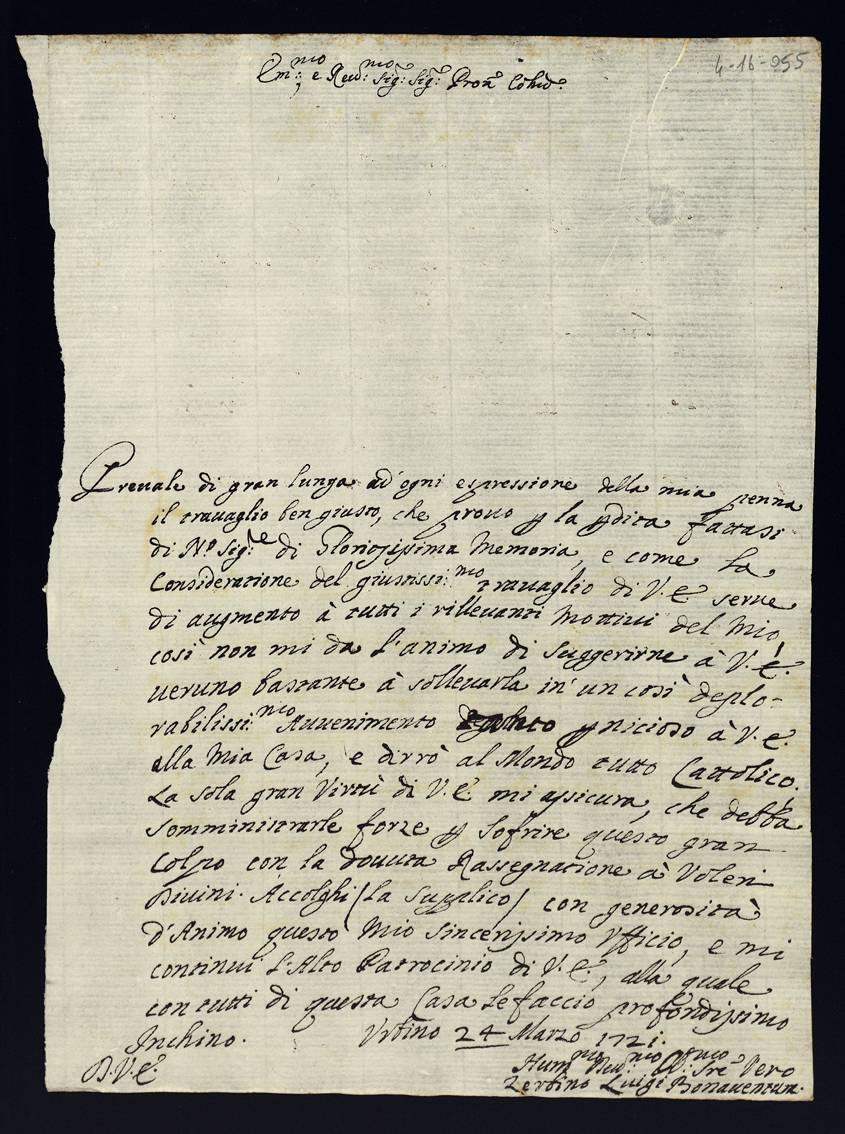 4-16-955
Em:mo e Reu:mo Sig: Sig: Pron Colmo
Preuale di gran lunga ad'ogni espressione della mia penna
il trauaglio ben giusto, che prouo p la pdita fattasi
di N.o Sig:re di Gloriosissima Memoria, e come la
Consideratione del giustissi:mo trauaglio di V.E. serue
di augmento à tutti i rilleuanti Mottiui del Mio,
così non mi da l'animo di Suggerirne à V.E.
ueruno bastante à solleuarla in'un così deplo-
rabilissi:mo Auuenimento pnicioso à V.E.
alla Mia Casa, e dirrò al Mondo tutto Cattolico.
La sola gran Virtù di V.E. mi assicura, che debba
Somministrarle forze p Sofrire questo gran
Colpo con la douuta Rassegnatione à Voleri
Diuini. Accolghi /la Supplico/ con generosità
d'Animo questo Mio Sincerissimo Vfficio, e mi
continui l'Alto Patrocinio di V.E., alla quale
con tutti di questa Casa le faccio profondissimo
Inchino. Vrbino 24 Marzo 1721.
D.V.E. Hum:mo Deu:mo Ser.e Vero
Luigi Bonauentura